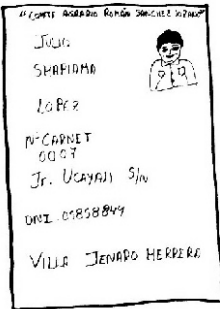 "COMITE AGRARIO ROMÁN SANCHEZ LOZANO"
JULIO
SHAPIAMA
LOPEZ
Nº CARNET
0007
Jr. UCAYALI S/N
DNI. 05858849
VILLA JENARO HERRERA